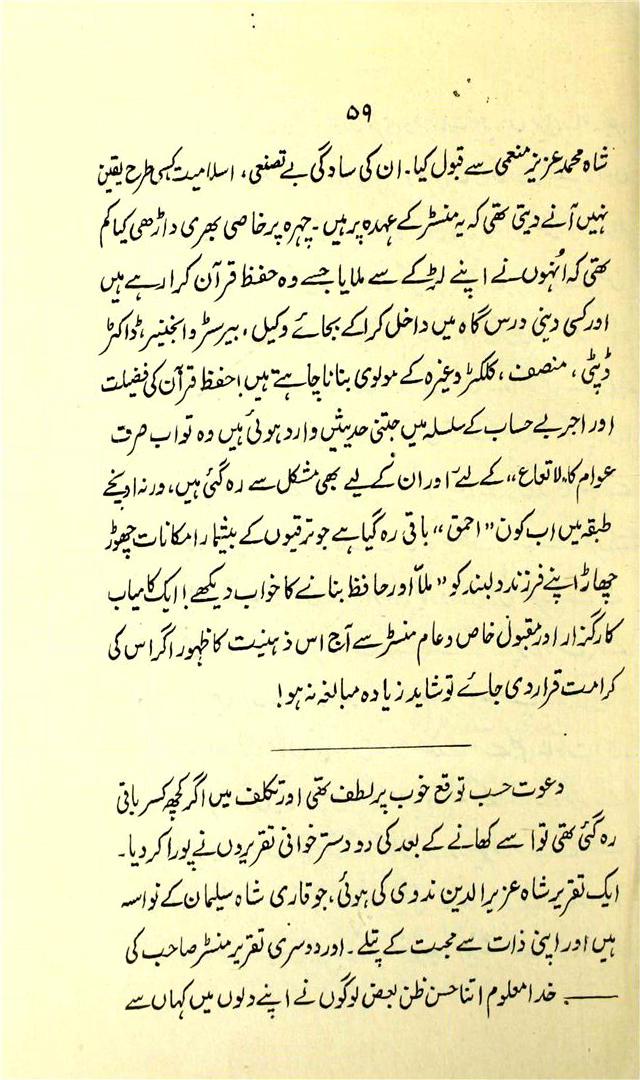 ۵۹
شاہ محمد عزیز منعمی سے قبول کیا۔ ان کی سادگی بے تصنعی، اسلامیت کسی طرح یقین
نہیں آنے دیتی تھی کہ یہ منسٹر کے عہدہ پر ہیں۔ چہرہ پر خاصی بھری داڑھی کیا کم
تھی کہ اُنہوں نے اپنے لڑکے سے ملایا جسے وہ حفظ قرآن کرا رہے ہیں
اور کسی دینی درس گاہ میں داخل کرا کے بجائے وکیل، بیرسٹر و انجنیر، ڈاکٹر
ڈپٹی، منصف، کلکٹر وغیرہ کے مولوی بنانا چاہتے ہیں! حفظ قرآن کی فضیلت
اور اجر بے حساب کے سلسلہ میں جتنی حدیثیں وارد ہوئی ہیں وہ تو اب صرف
عوام کا "لاتعاع" کے لیے اور ان کے لیے بھی مشکل سے رہ گئی ہیں، ورنہ اونچے
طبقہ میں اب کون "احمق" باقی رہ گیا ہے جو ترقیوں کے بیشمار امکانات چھوڑ
چھاڑ اپنے فرزند دلبند کو "ملّا اور حافظ بنانے کا خواب دیکھے! ایک کامیاب
کارگزار اور مقبول خاص و عام منسٹر سے آج اس ذہنیت کا ظہور اگر اس کی
کرامت قرار دی جائے تو شاید زیادہ مبالغہ نہ ہو!
دعوت حسب توقع خوب پر لطف تھی اور تکلف میں اگر کچھ کسر باقی
رہ گئی تھی تو اسے کھانے کے بعد کی دو دسترخوانی تقریروں نے پورا کر دیا۔
ایک تقریر شاہ عزیر الدین ندوی کی ہوئی، جو قاری شاہ سلیمان کے نواسہ
ہیں اور اپنی ذات سے محبت کے پتلے۔ اور دوسری تقریر منسٹر صاحب کی
ـــــ۔ خدا معلوم اتنا حسن ظن بعض لوگوں نے اپنے دلوں میں کہاں سے